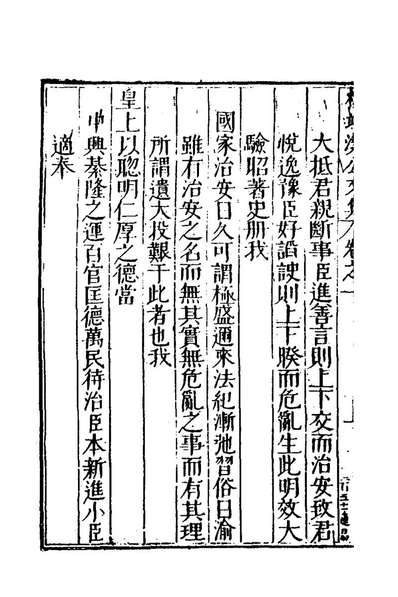 大抵君親斷事臣進善言則上下交而治安致君
悅逸豫臣好謟諛則上下睽而危亂生此明效大
驗昭著史册我
國家治安日久可謂極盛邇來法紀漸弛習俗日渝
雖有治安之名而無其實無危亂之事而有其理
所謂遺大投艱于此者也我
皇上以聰明仁厚之德當
中興綦隆之運百官匡德萬民待治臣本新進小臣
適奉